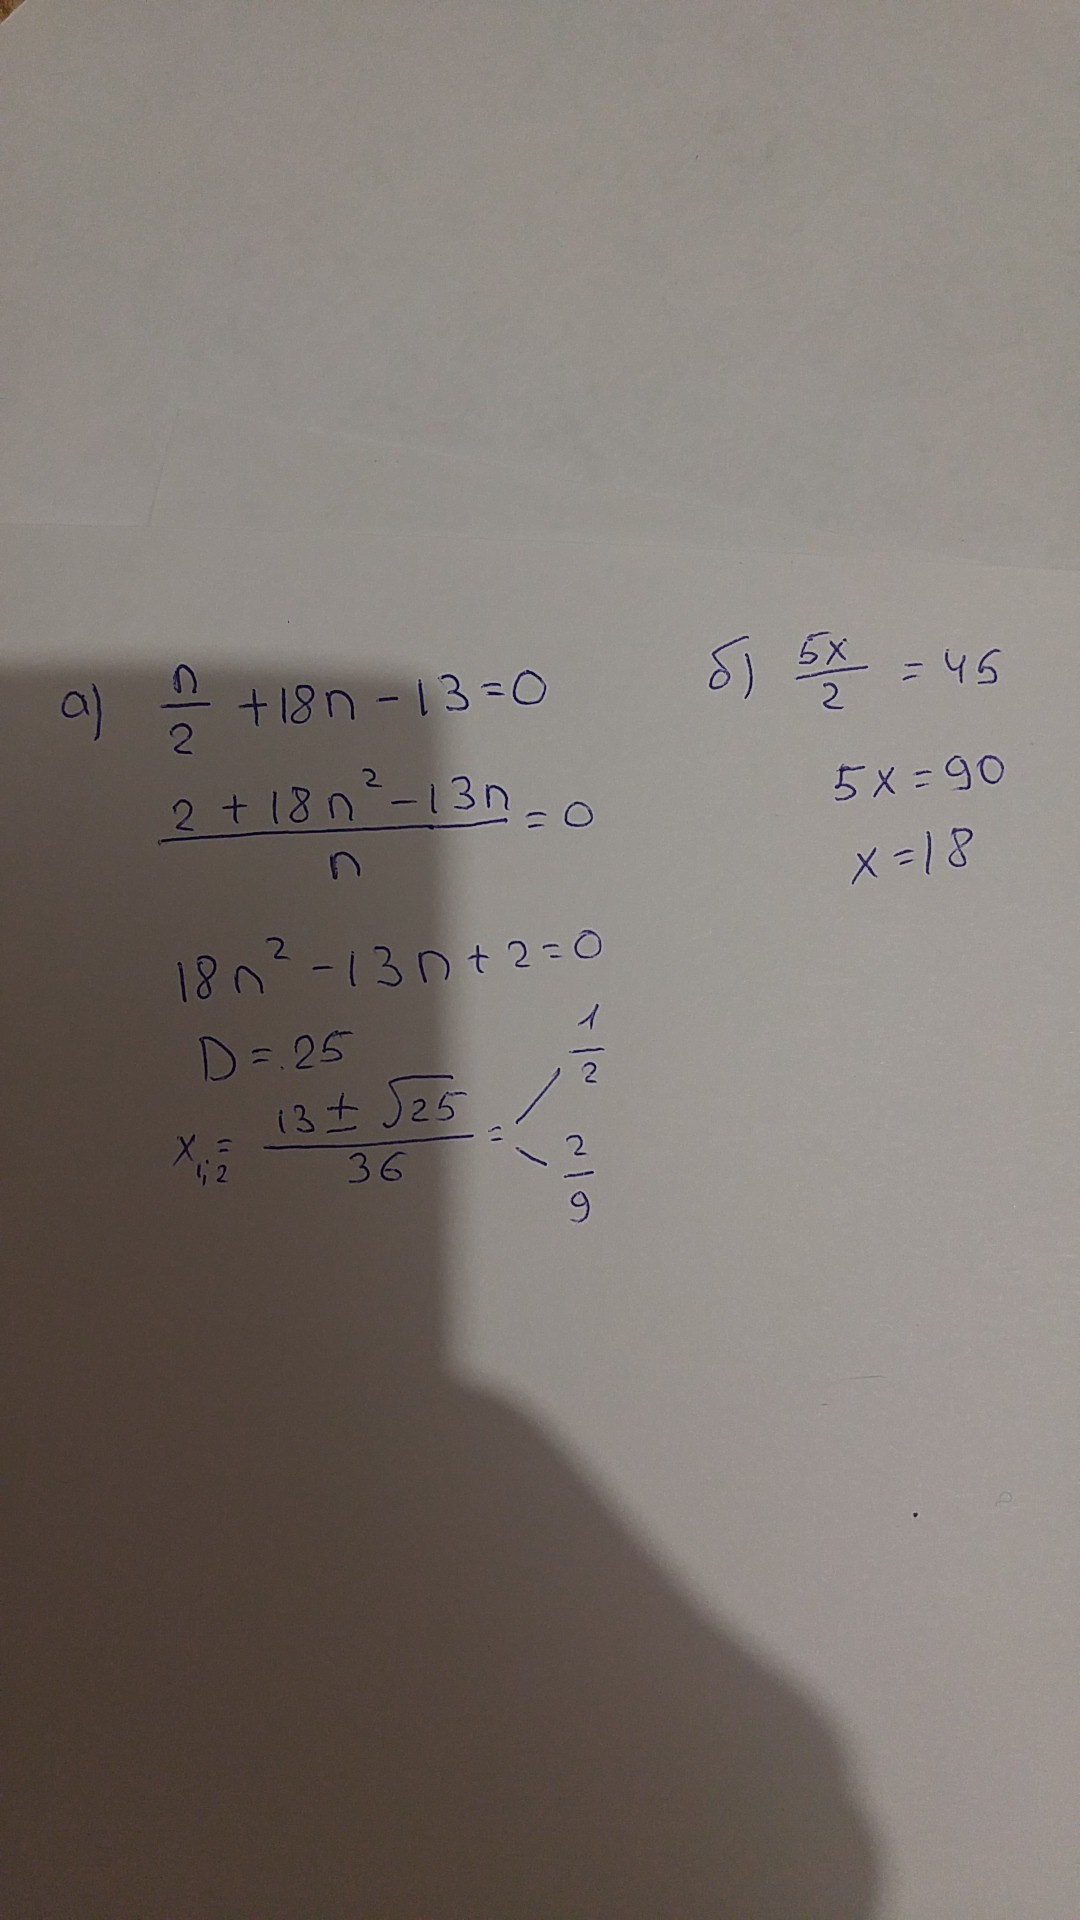 а) n/2 + 18n - 13 = 0
(2 + 18n² - 13n)/n = 0
18n² - 13n + 2 = 0
D = 25
x₁;₂ = (13 ± √25)/36 = 1/2
2/9
б) 5x/2 = 45
5x = 90
x = 18